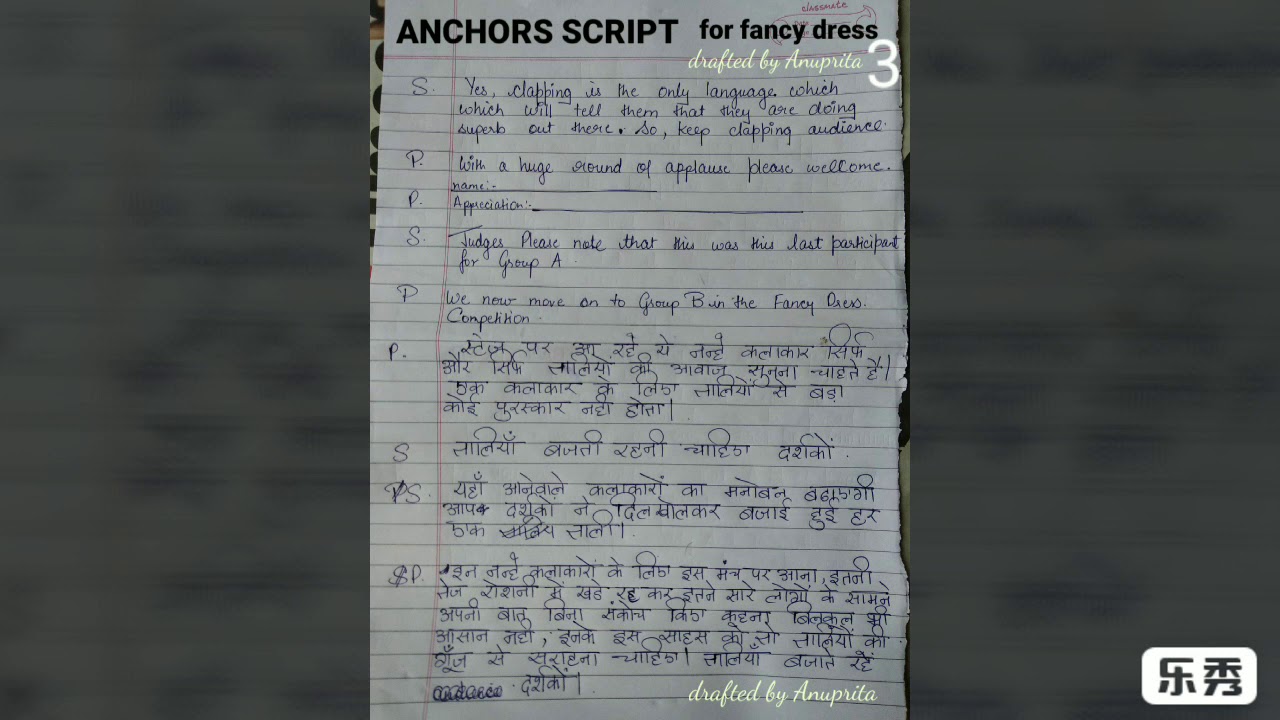 classmate
ANCHORS SCRIPT for fancy dress
drafted by Anuprita 3
S. Yes, clapping is the only language which
which will tell them that they are doing
superb out there. So, keep clapping audience.
P. With a huge round of applause please wellcome.
name:-
P. Appreciation:-
S. Judges Please note that this was this last participant
for Group A.
P We now move on to Group B in the Fancy Dress.
Competition.
P. स्टेज पर आ रहे ये नन्हे कलाकार सिर्फ
और सिर्फ तालियों की आवाज सुनना चाहते है।
एक कलाकार के लिए तालियों से बड़ा
कोई पुरस्कार नही होता।
S तालियाँ बजती रहनी चाहिए दर्शकों.
S. यहाँ आनेवाले कलाकारों का मनोबन बढाएगी
आप दर्शकों ने दिल खोलकर बजाई हुई हर
एक ताली।
P. इन नन्हे कलाकारों के लिए इस मंच पर आना, इतनी
तेज रोशनी में खडे रह कर इतने सारे लोगों के सामने
अपनी बात बिना संकोच किए कहना बिलकुल भी
आसान नही, इनके इस साहस को तो तालियों की
गूँज से सराहना चाहिए। तालियाँ बजाते रहें
दर्शकों।
drafted by Anuprita
乐秀